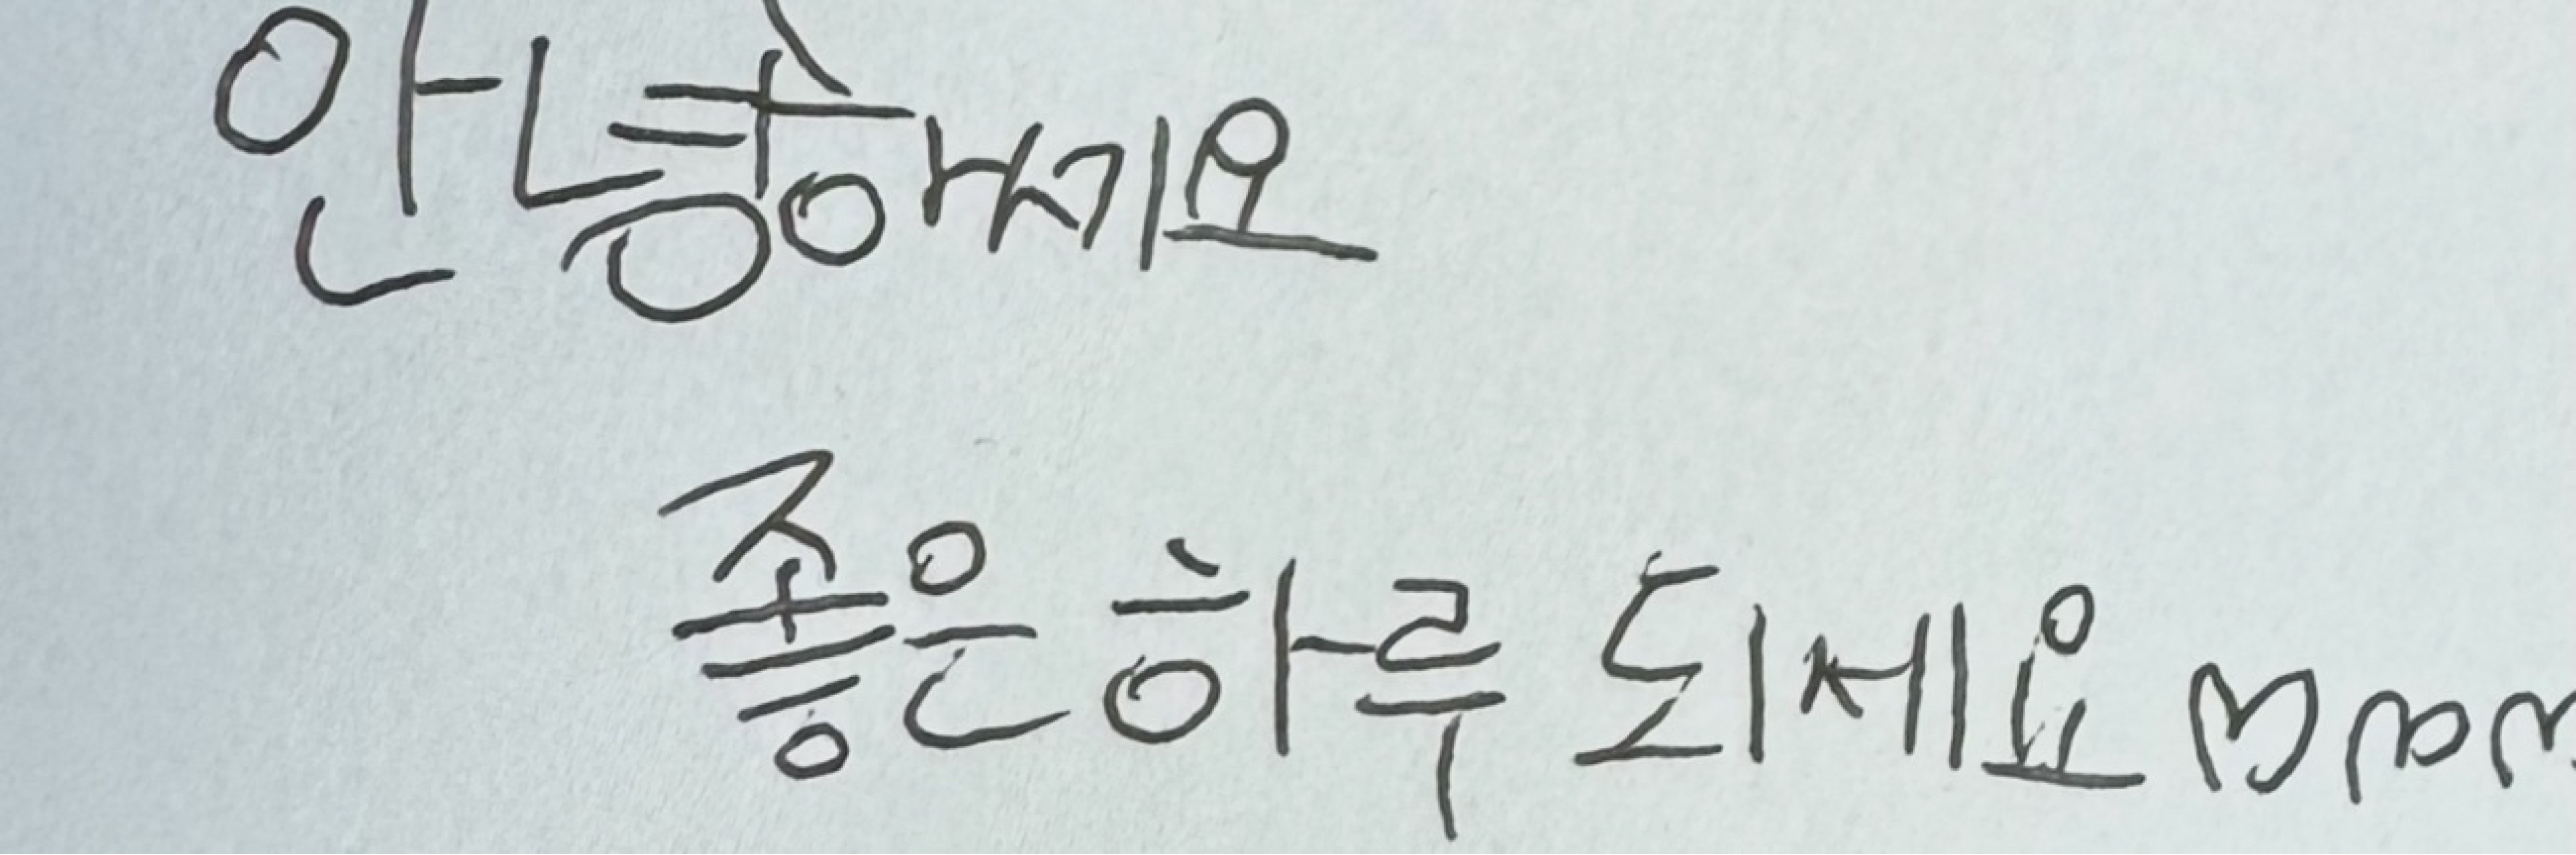 안녕하세요
좋은 하루 되세요